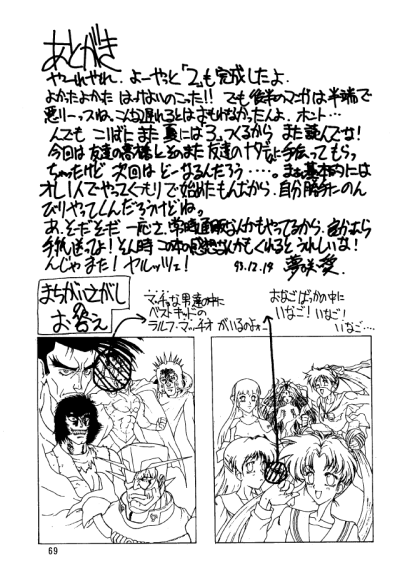 あとがき
やーれやれ、よーやっと「2」も完成したよ。
よかったよかた はっけよいのこった!! でも後半のマンガは半端で
悪りーっスね、こんな遅れるとはおもわなかったんよ。ホント…
んでも こりずに また 夏には 3. つくるから また 読んでな!
今回は友達の高橋と そのまた 友達の
ちゃったけど 次回は どーなるんだろう・・・・。まぁ基本的には
オレ1人でやってくつもりで始めたもんだから、自分勝手にのん
びりやってくんだろうけどね。
あ、そだそだ 一応さ、常時通販なんかもやってるから、
手紙送ってよ! そん時 この本の感想なんかもくれるとうれしいな!
んじゃまた! ヤルッツェ! 93.12.19 夢咲
まちがいさがし
お答え
マッチョな男達の中に
ベストキッドの
ラルフ・マッチオ がいるのよォ
おなごばっかの中に
いなご! いなご!
いなご…
69